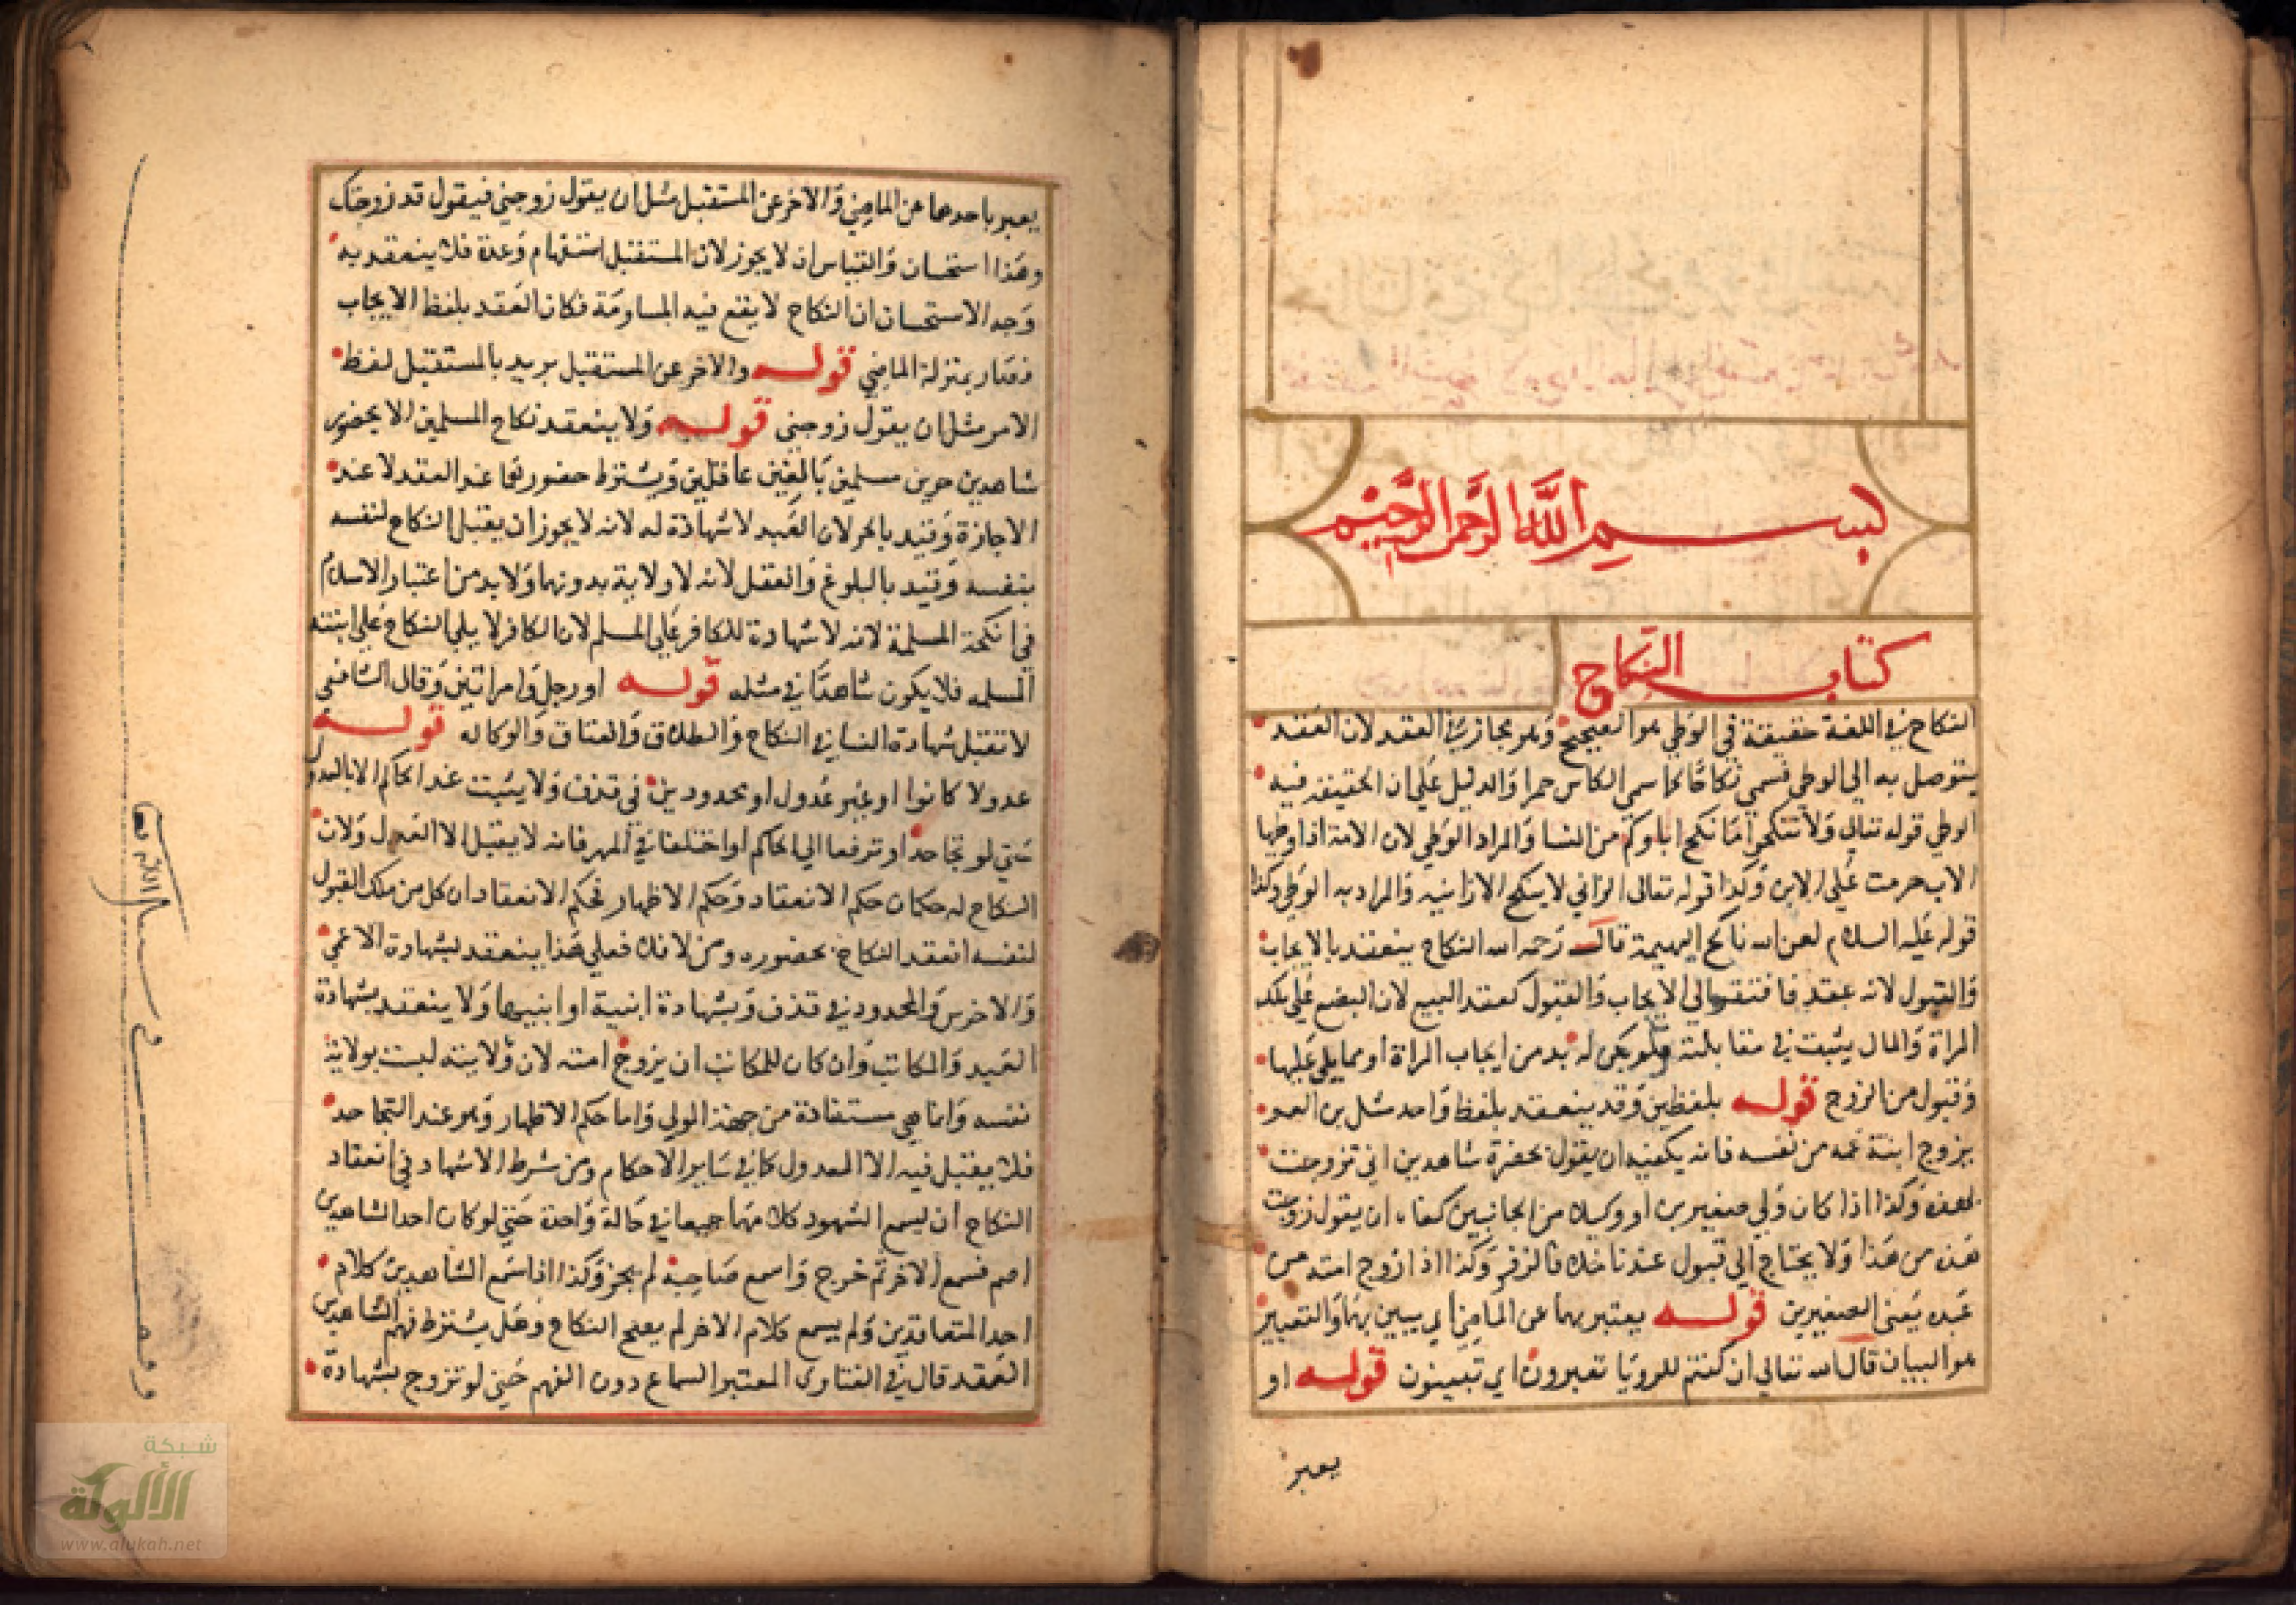 بسم الله الرحمن الرحيم
كتاب النكاح
النكاح في اللغة حقيقة في الوطي هو الصحيح وهو مجاز في العقد لان العقد
يتوصل به الي الوطي فسمي نكاحا كما سمي الكاس خمرا والدليل علي ان الحقيقة فيه
الوطي قوله تعالي ولا تنكحوا ما نكح اباوكم من النسا والمراد الوطي لان الامة اذا وطيها
الاب حرمت علي الابن وكذا قوله تعالى الزاني لا ينكح الا زانية والمراد به الوطي وكذا
قوله عليه السلام لعن الله ناكح البهيمة قال رحمه الله النكاح ينعقد بالايجاب
والقبول لانه عقد فافتقر الي الايجاب والقبول كعقد البيع لان البضع علي ملك
المراة والمال يثبت في مقابلته فلم يكن له بد من ايجاب المراة او ممن يلي عليها
وقبول من الزوج قوله بلفظين وقد ينعقد بلفظ واحد مثل بن العم
يزوج ابنة عمه من نفسه فانه يكفيه ان يقول بحضرة شاهدين اني تزوجت
بهذه وكذا اذا كان ولي صغيرين او وكيلا من الجانبين كفاه ان يقول زوجت
هذه من هذا ولا يحتاج الي قبول عندنا خلافا لزفر وكذا اذا زوج امته من
عبده يعني الصغيرين قوله يعتبر بهما عن الماضي اي يبين بهما والتعبير
هو البيان قال الله تعالي ان كنتم للرويا تعبرون اي تبينون قوله او
يعبر
يعبر باحدهما عن الماضي والاخر عن المستقبل مثل ان يقول زوجني فيقول قد زوجتك
وهذا استحسان والقياس ان لا يجوز لان المستقبل استفهام وعدة فلا ينعقد به
وجه الاستحسان ان النكاح لا يقع فيه المساومة فكان العقد بلفظ الايجاب
فصار بمنزلة الماضي قوله والاخر عن المستقبل يريد بالمستقبل لفظ
الامر مثل ان يقول زوجني قوله ولا ينعقد نكاح المسلمين الا بحضور
شاهدين حرين مسلمين بالغين عاقلين ويشترط حضورهما عند العقد لا عند
الاجازة وقيد بالحر لان العبد لا شهادة له لانه لا يجوز ان يقبل النكاح لنفسه
بنفسه وقيد بالبلوغ والعقل لانه لا ولاية بدونهما ولا بد من اعتبار الاسلام
في انكحة المسلمة لانه لا شهادة للكافر علي المسلم لان الكافر لا يلي النكاح علي ابنته
المسلمه فلا يكون شاهدا في مثله قوله او رجل وامراتين وقال الشافعي
لا تقبل شهادة النسا في النكاح والطلاق والعتاق والوكاله قوله
عدولا كانوا او غير عدول او محدودين في قذف ولا يثبت عند الحاكم الا بالعدول
حتي لو تجاحدا وترفعا الي الحاكم او اختلفا في المهر فانه لا يقبل الا العدول ولان
النكاح له حكمان حكم الانعقاد وحكم الاظهار فحكم الانعقاد ان كل من ملك القبول
لنفسه انعقد النكاح بحضوره ومن لا فلا فعلي هذا ينعقد بشهادة الاعمي
والاخرس والمحدود في قذف وبشهادة ابنيه او ابنيها ولا ينعقد بشهادة
العبد والمكاتب وان كان للمكاتب ان يزوج امته لان ولايته ليست بولاية
نفسه وانما هي مستفادة من جهة المولي واما حكم الاظهار وهو عند التجاحد
فلا يقبل فيه الا العدول كما في ساير الاحكام ومن شرط الاشهاد في انعقاد
النكاح ان يسمع الشهود كلامهما جميعا في حالة واحدة حتي لو كان احد الشاهدين
اصم فسمع الاخر ثم خرج واسمع صاحبه لم يجز وكذا اذا سمع الشاهدين كلام
احد المتعاقدين ولم يسمع كلام الاخر لم يصح النكاح وهل يشترط فهم الشاهدين
العقد قال في الفتاوى المعتبر السماع دون الفهم حتي لو تزوج بشهادة
شبكة
الألوكة
www.alukah.net